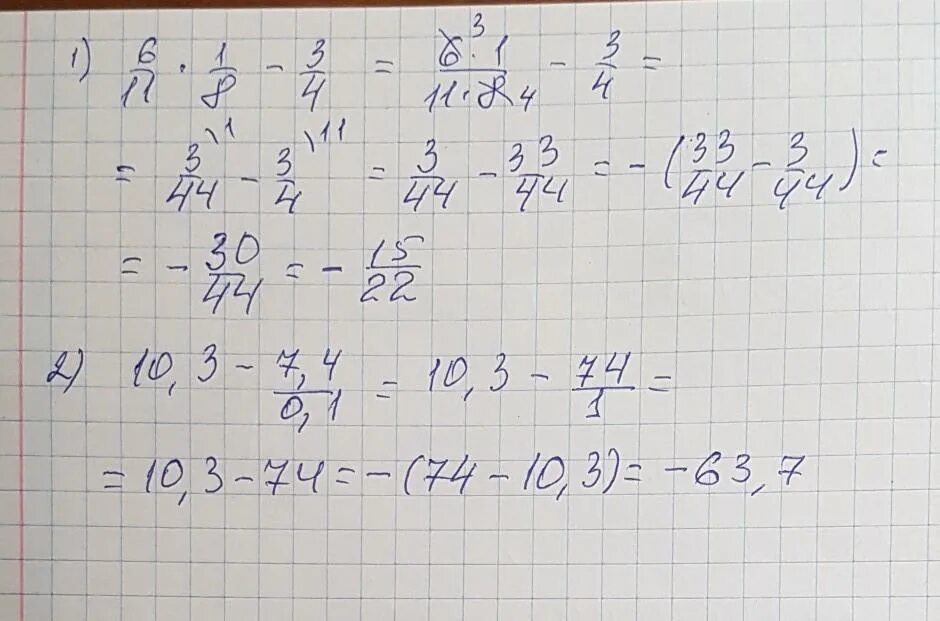 1) 6/11 · 1/8 - 3/4 = 6³·1/11·8₄ - 3/4 =
= 3/44\1 - 3/4\11 = 3/44 - 33/44 = -(33/44 - 3/44) =
= - 30/44 = - 15/22
2) 10,3 - 7,4/0,1 = 10,3 - 74/1 =
= 10,3 - 74 = -(74 - 10,3) = -63,7